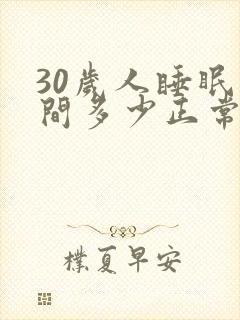 30歲人睡眠
間多少正常
樸夏早安